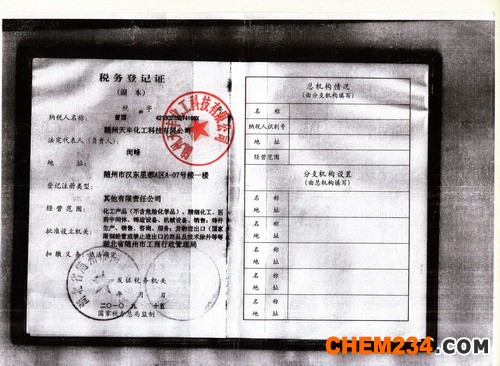 税务登记证
(副本)
税 字
纳税人名称:
随州天丰化工科技有限公司
法定代表人(负责人):
闵峰
地 址:
随州市汉东星都A区A-07号楼一楼
登记注册类型:
其他有限责任公司
经营范围:
化工产品(不含危险化学品)、精细化工、医
药中间体、铸造设备、机械设备、销售;特养
生产、销售、咨询、服务;货物进出口(国家
限制经营或禁止进出口的商品及技术除外等等
批准设立机关:
湖北省随州市工商行政管理局
扣缴义务:
依法确定
发证税务机关
年 月 日
二〇一〇 九 十五
国家税务总局监制
总机构情况
(由分支机构填写)
名 称
纳税人识别号
地 址
经营范围
分支机构设置
(由总机构填写)
名 称
地 址
名 称
地 址
名 称
地 址
名 称
地 址
名 称
地 址
CHEM234.COM